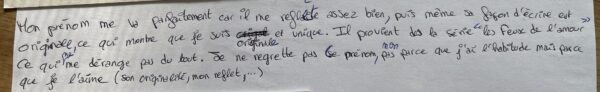 Mon prénom me va parfaitement car il me reflète assez bien, puis même sa façon d'écrire est
originale, ce qui montre que je suis originale et unique. Il provient de la série « les feux de l'amour »
Ce qui ne me dérange pas du tout. Je ne regrette pas ce prénom, non pas parce que j'ai l'habitude mais parce
que je l'aime (son originalité, mon reflet, ...)